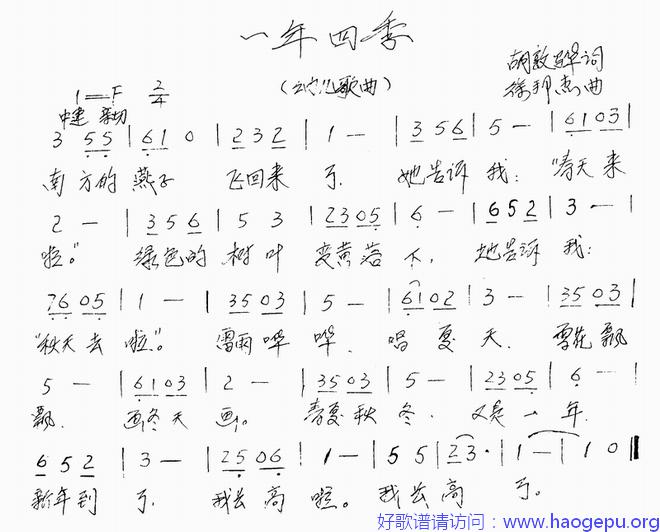 一年四季
(幼儿歌曲)
胡敦骅词
徐邦杰曲
1=F 2/4
中速 亲切
3 55 | 61 0 | 232 | 1 — | 3 56 | 5 — | 61 03 |
南方的燕子 飞回来了, 她告诉我:"春天来
2 — | 356 | 5 3 | 23 05 | 6 — | 652 | 3 — |
啦。" 绿色的树叶 变黄落下, 她告诉我:
76 05 | 1 — | 35 03 | 5 — | 61 02 | 3 — | 35 03 |
"秋天去啦"。 雷雨哗哗、唱夏天、雪花飘
5 — | 61 03 | 2 — | 35 03 | 5 — | 23 05 | 6 — |
飘、画冬天画。 春夏秋冬、又是一年、
6 5 2 | 3 — | 25 06 | 1 — | 5 5 | 23 · | 1 — | 1 0 ‖
新年到了、我长高啦。我长高了。
好歌谱请访问：www.haogepu.org